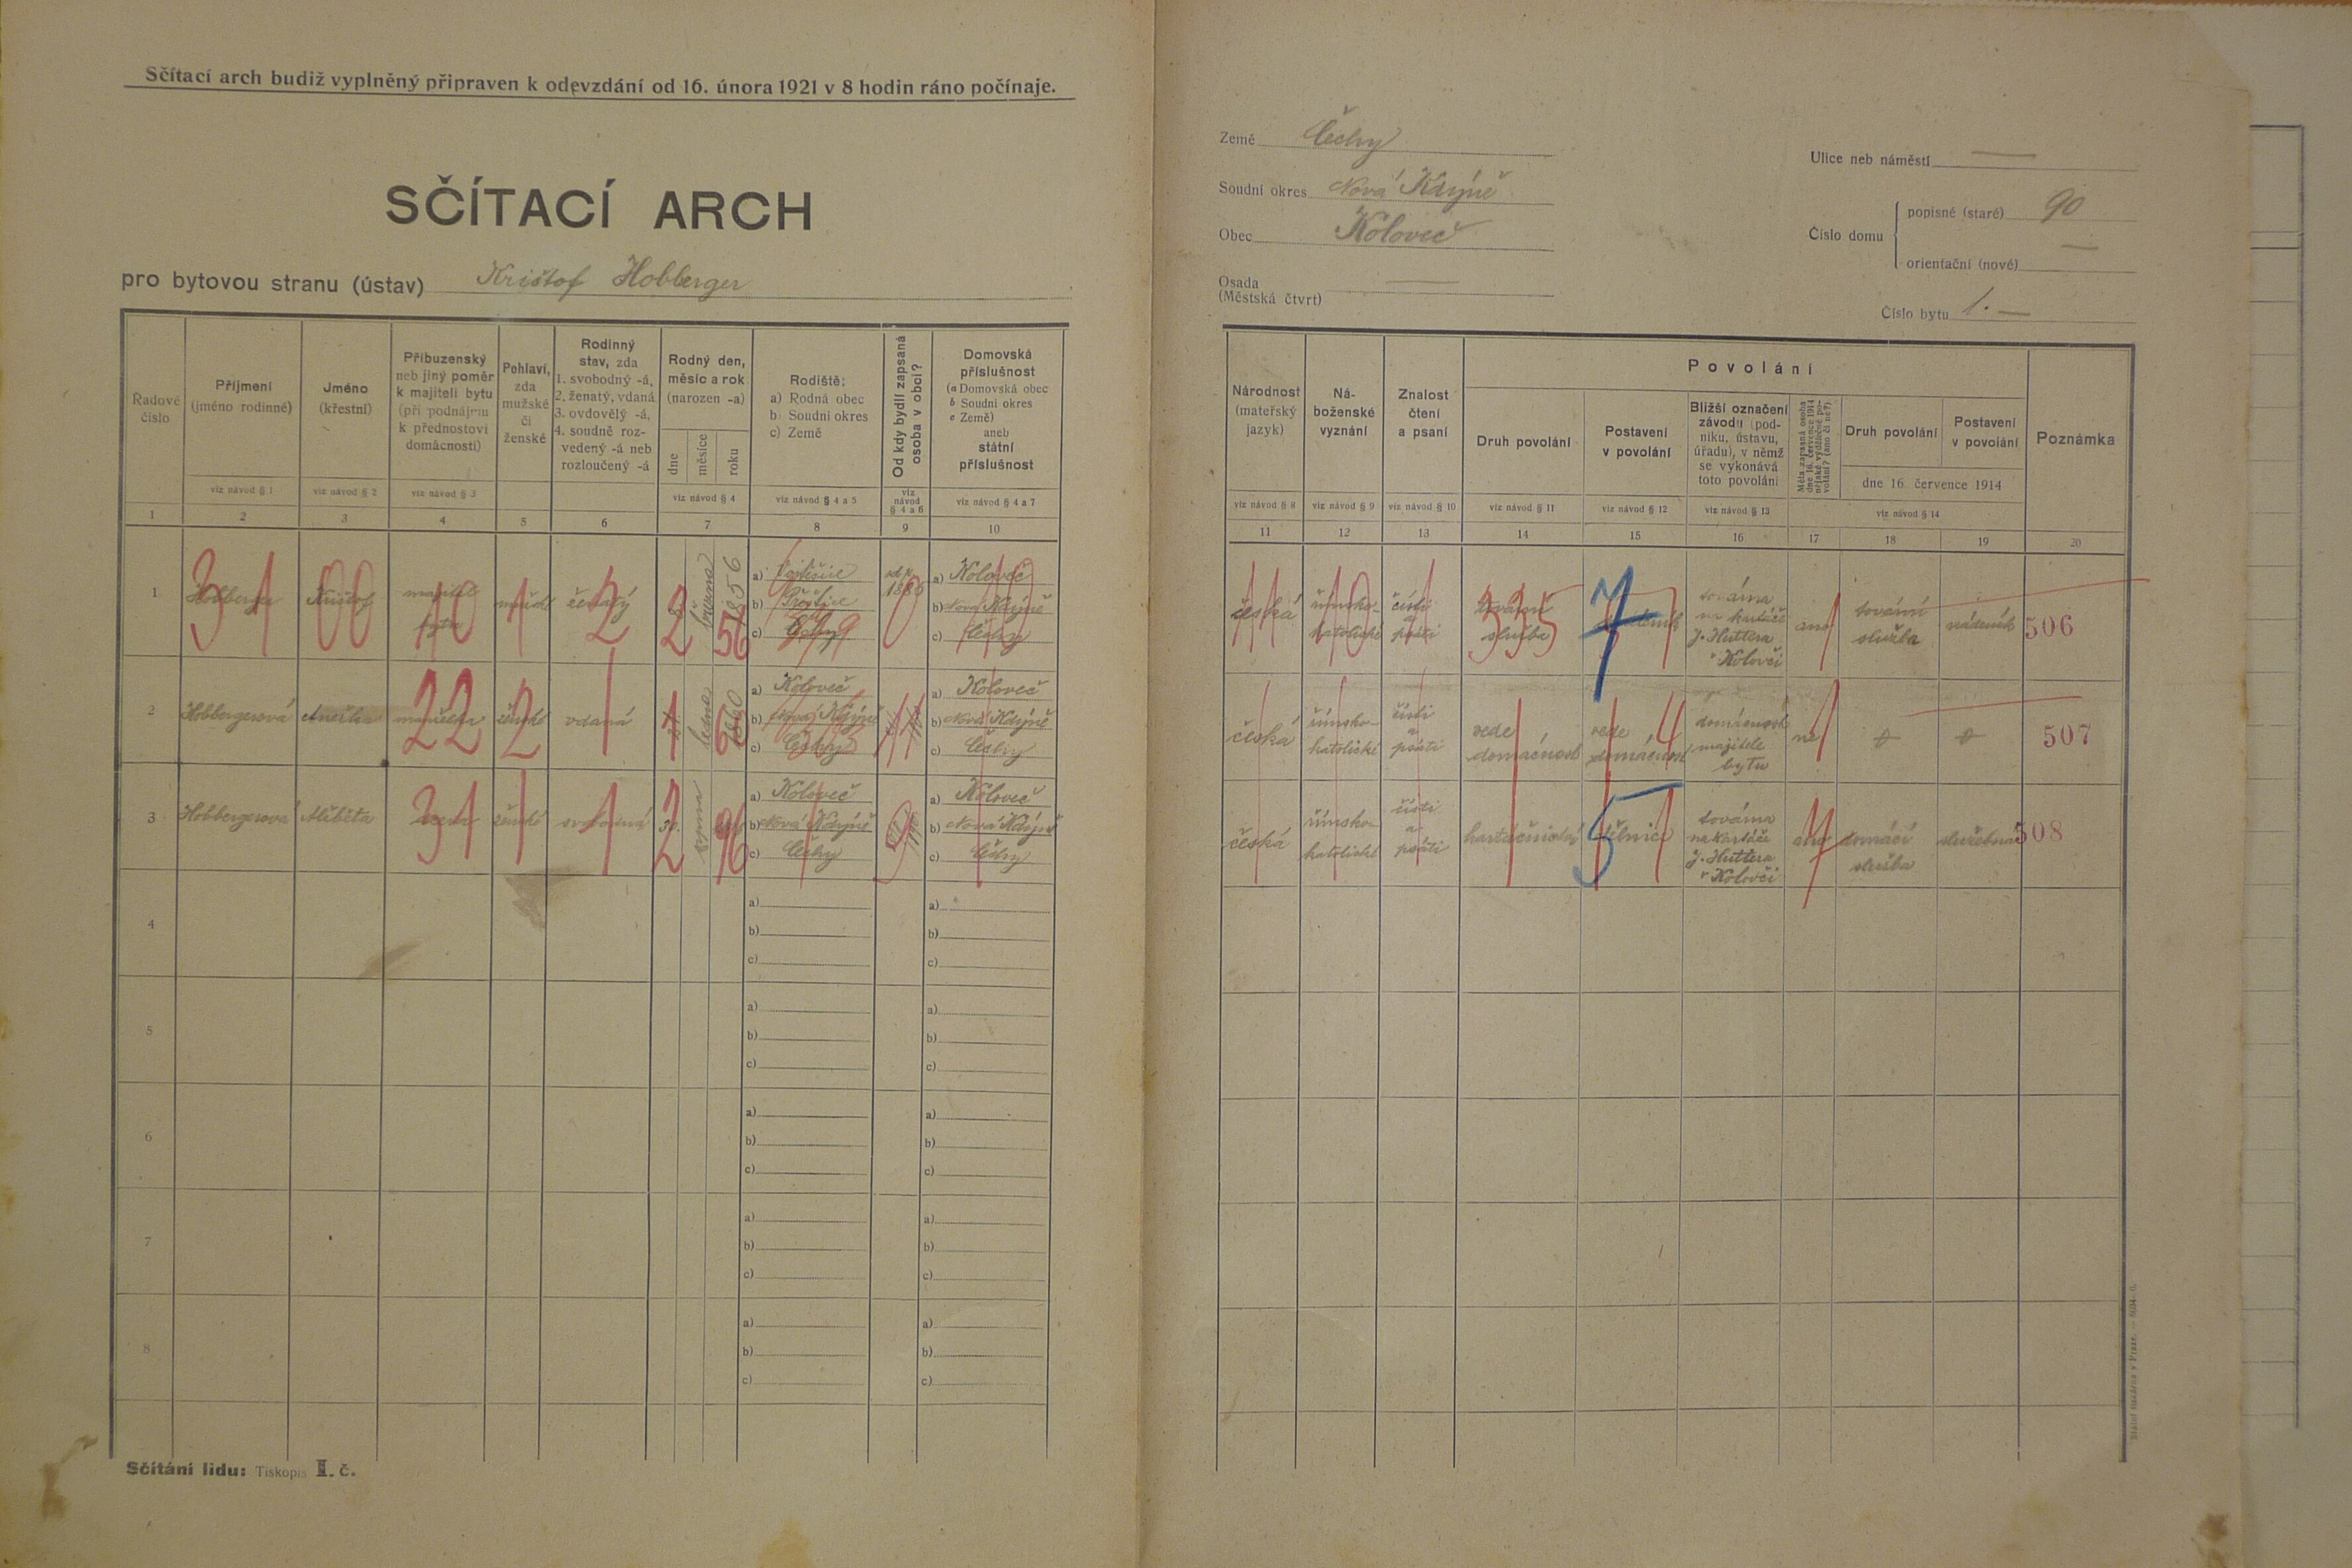 Sčítací arch budiž vyplněný připraven k odevzdání od 16. února 1921 v 8 hodin ráno počínaje.
SČÍTACÍ ARCH
pro bytovou stranu (ústav) Krištof Hobberger
Řadové číslo
Příjmení (jméno rodinné)
viz návod § 1
Jméno (křestní)
viz návod § 2
Příbuzenský neb jiný poměr k majiteli bytu (při podnájmu k přednostovi domácnosti)
viz návod § 3
Pohlaví, zda mužské či ženské
Rodinný stav, zda
1. svobodný -á,
2. ženatý, vdaná
3. ovdovělý -á,
4. soudně rozvedený -á neb rozloučený -á
Rodný den, měsíc a rok (narozen -a)
dne měsíce roku
viz návod § 4
Rodiště:
a) Rodná obec
b) Soudní okres
c) Země
viz návod § 4 a 5
Od kdy bydlí zapsaná osoba v obci?
viz návod § 4 a 6
Domovská příslušnost
(a Domovská obec
b Soudní okres
c Země)
aneb státní příslušnost
viz návod § 4 a 7
1 2 3 4 5 6 7 8 9 10
1 Hobberger Krištof majitel bytu mužské ženatý března 1856
a) b) c) Čechy
a) Koloveč
b) Nová Kdýně
c) Čechy
31 00 10 1 2 2 56 0
2 Hobbergerová Anežka manželka ženské vdaná ledna
a) Koloveč
b) Nová Kdýně
c) Čechy
a) Koloveč
b) Nová Kdýně
c) Čechy
22 2 1 1 60
3 Hobbergerová Alžběta dcera ženské svobodná 30. srpna
a) Koloveč
b) Nová Kdýně
c) Čechy
a) Koloveč
b) Nová Kdýně
c) Čechy
31 1 1 2 96 9
4 a) b) c) a) b) c)
5 a) b) c) a) b) c)
6 a) b) c) a) b) c)
7 a) b) c) a) b) c)
8 a) b) c) a) b) c)
Sčítání lidu: Tiskopis II. č.
Země Čechy
Soudní okres Nová Kdýně
Obec Koloveč
Osada (Městská čtvrt)
Ulice neb náměstí
Číslo domu
popisné (staré) 90
orientační (nové)
Číslo bytu 1.
Národnost (mateřský jazyk)
viz návod § 8
Náboženské vyznání
viz návod § 9
Znalost čtení a psaní
viz návod § 10
Povolání
Druh povolání
viz návod § 11
Postavení v povolání
viz návod § 12
Bližší označení závodu (podniku, ústavu, úřadu), v němž se vykonává toto povolání
viz návod § 13
Měla zapsaná osoba dne 16. července 1914 nějaké výdělečné povolání? (ano či ne?)
Druh povolání
Postavení v povolání
dne 16. července 1914
viz návod § 14
Poznámka
11 12 13 14 15 16 17 18 19 20
česká římsko-katolické čísti a psáti tovární služba nádeník továrna na kartáče J. Huttera v Kolovči ano tovární služba nádeník 506
335 7
česká římsko-katolické čísti a psáti vede domácnost vede domácnost domácnost majitele bytu ne 507
4
česká římsko-katolické čísti a psáti kartáčnictví dělnice továrna na kartáče J. Huttera v Kolovči ano domácí služba služebná 508
5